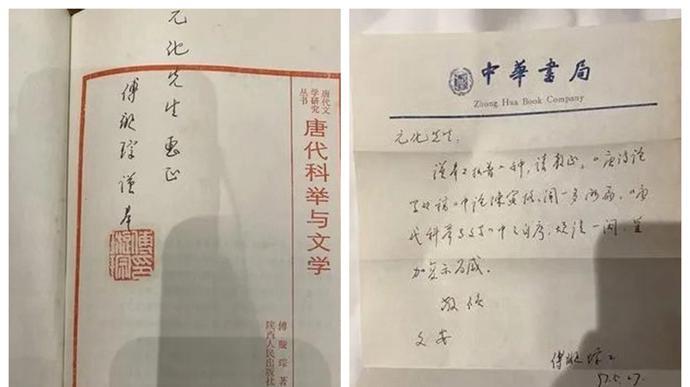 元化先生惠正
傅璇琮谨奉
唐代文
学研究
丛书
唐代科举与文学
傅璇琮著
陕西人民出版社
中華書局
Zhong Hua Book Company
元化先生：
谨奉上拙著二种，请教正。《唐诗论
学丛稿》中论陈寅恪、闻一多两篇，《唐
代科举与文学》中之自序，烦请一阅，
加
敬颂
文安
傅璇琮上